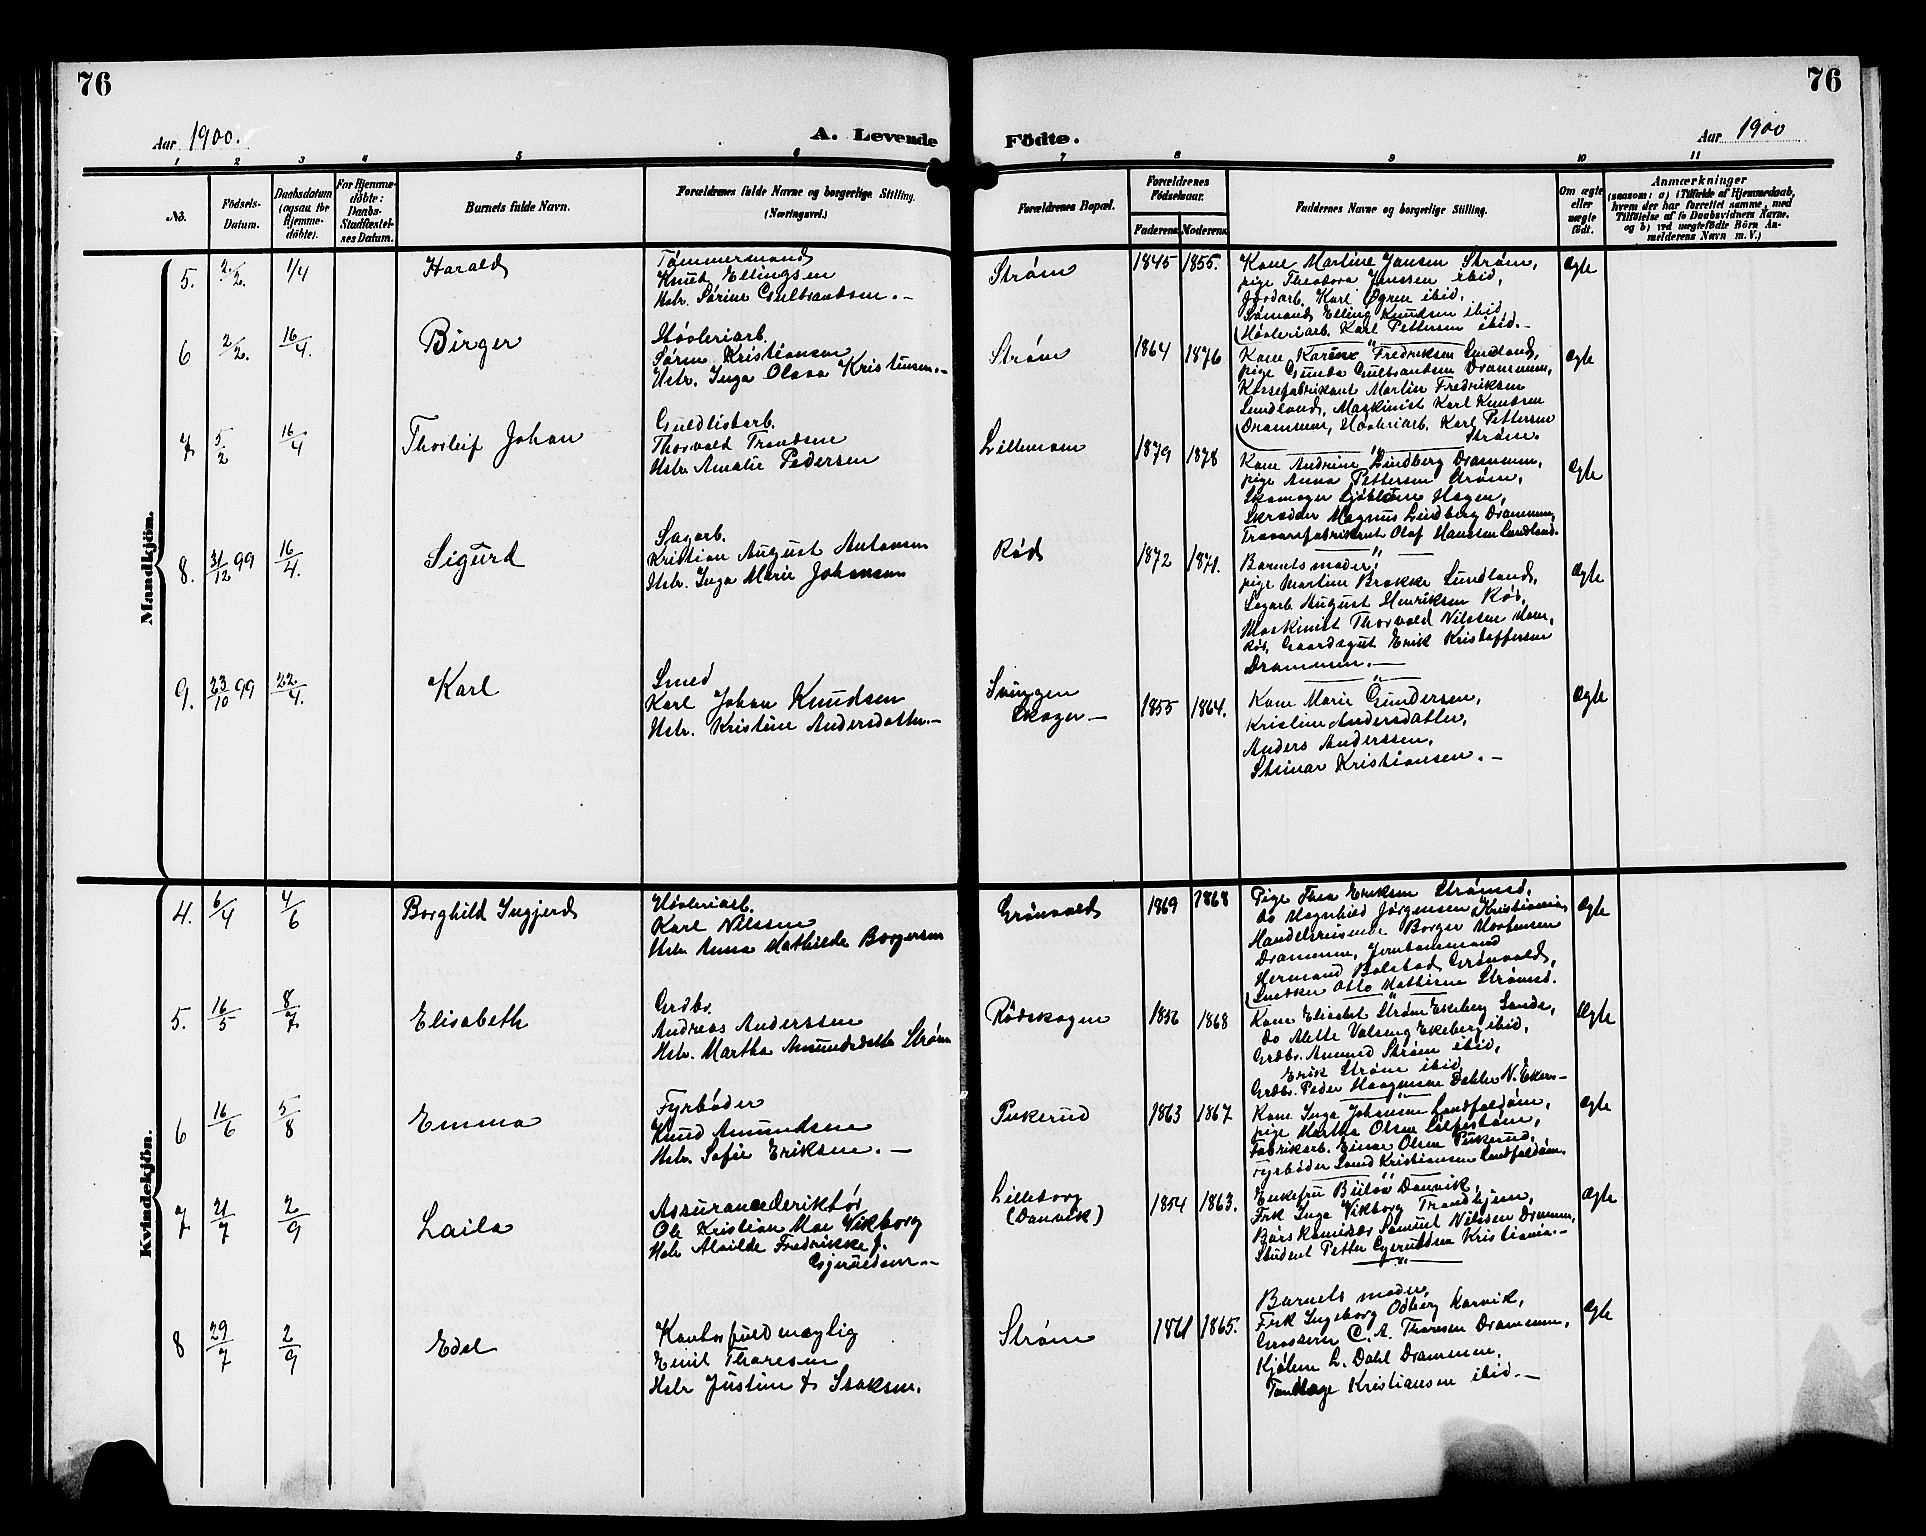 76
76
Aar 1900.
A. Levende
Födte.
Aar 1900
1 2 3 4 5 6 7 8 9 10 11
No.
Födsels-Datum.
Daabsdatum (ogsaa for Hjemme-döbte).
For Hjemme-döbte: Daabs-Stadfæstel-ses Datum.
Barnets fulde Navn.
Forældrenes fulde Navne og borgerlige Stilling.
(Næringsvei.)
Forældrenes Bopæl.
Forældrenes Födselsaar.
Faderens
Moderens
Faddernes Navne og borgerlige Stilling.
Om ægte eller uægte födt.
Anmærkninger
(saasom: a) i Tilfælde af Hjemmedaab, hvem der har forrettet samme, med Tilföielse af to Daabsvidners Navne. og b) ved uægtefödte Börn An-melderens Navn m. V.)
Mandkjön.
5. 2/2. 1/4 Harald
Tømmermand
Knud Ellingsen
Hstr. Sørine Gulbrandsen. -
Strøm 1845 1855.
Kone Martine Jansen Strøm,
pige Theodora Janssen ibid,
Jordarb. Karl Øgren ibid,
Sømand Elling Knudsen ibid
Høvleriarb. Karl Pettersen ibid. -
Ægte
6 2/2. 16/4. Birger
Høvleriarb.
Søren Kristiansen
Hstr. Inga Olava Kristensen. -
Strøm 1864 1876
Kone Karine Fredriksen Sundland,
pige Gunda Gulbrandsen Drammen,
Karsefabrikant Martin Fredriksen
Sundland, Maskinist Karl Knudsen
Drammen, Høvleriarb. Karl Pettersen
Strøm.
Ægte
7 5/2 16/4 Thorleif Johan
Guldlistarb.
Thorvald Trondsen
Hstr. Amalie Pedersen
Lillemoen 1879 1878
Kone Andrine Lindberg Drammen,
pige Anna Pettersen Strøm,
Skomager Sjöblom Hagen,
Skrædder Magnus Lindberg Drammen,
Trævarefabrikant Olaf Hansen Sundland.
Ægte
8. 31/12 99 16/4. Sigurd
Sagarb.
Kristian August Antonsen
Hstr. Inga Marie Johansen
Rød 1872 1871.
Barnets moder,
pige Martine Brække Sundland,
Sagarb. August Henriksen Rød,
Maskinist Thorvald Nilssen
Rød, Gaardsgut Erik Kristoffersen
Drammen. -
Ægte
9. 23/10 99 22/4. Karl
Smed
Karl Johan Knudsen
Hstr. Kristine Andersdatter. -
Svingen
Skoger - 1855 1864.
Kone Marie Gundersen,
Kristine Andersdatter,
Anders Anderssen,
Steinar Kristiansen. -
Ægte
Kvindekjön.
4. 6/4 4/6 Borghild Ingjerd
Høvleriarb.
Karl Nilssen
Hstr. Anna Mathilde Borgersen
Grønvold 1869 1868
Pige Thea Eriksen Strømsd.
do Magnhild Jörgensen Kristiania,
Handelsreisende Borger Mortensen
Drammen, Jernbanemand
Hermand Bolstad Grønvold,
Snedker Otto Mathisen Strømsd.
Ægte
5. 16/5 8/7 Elisabeth
Grdbr.
Andreas Anderssen
Hstr. Martha Amundsdatter Strøm
Rødskogen 1856 1868
Kone Elisabet Strøm Ekeberg Sande,
do Alette Valseng Ekeberg ibid,
Grdbr. Anmund Strøm ibid,
Erik Strøm ibid,
Grdbr. Peder Haagensen Dahler N. Eker. -
Ægte
6 16/6 5/8 Emma
Fyrbøder
Knud Amundsen
Hstr. Sofie Eriksen. -
Pukerud 1863 1867
Kone Inga Johansen Landfaldøen,
pige Martha Olsen Lillestrøm,
Fabrikarb. Einar Olsen Pukerud,
Fyrbøder Lund Kristiansen Landfaldøen.
Ægte
7 21/7 2/9 Laila
Assurancederiktør
Ole Kristian Moe Vikborg
Hstr Alvilde Fredrikke f.
Gjerudsen. -
Lilleborg
(Danvik) 1854 1863.
Enkefru Bülow Danvik,
Frk Inga Vikborg Trondhjem,
Børskomisær Samuel Nilssen Drammen,
Student Petter Gjerudsen Kristiania. -
Ægte
8 29/7 2/9 Edel
Kontorfuldmægtig
Emil Thoresen
Hstr Justine f. Isaksen.
Strøm 1861 1865.
Barnets moder,
Frk Ingeborg Odberg Larvik,
Grosserer C. A. Thoresen Drammen,
Kjøbm L. Dahl Drammen,
Tandlæge Kristiansen ibid. -
Ægte